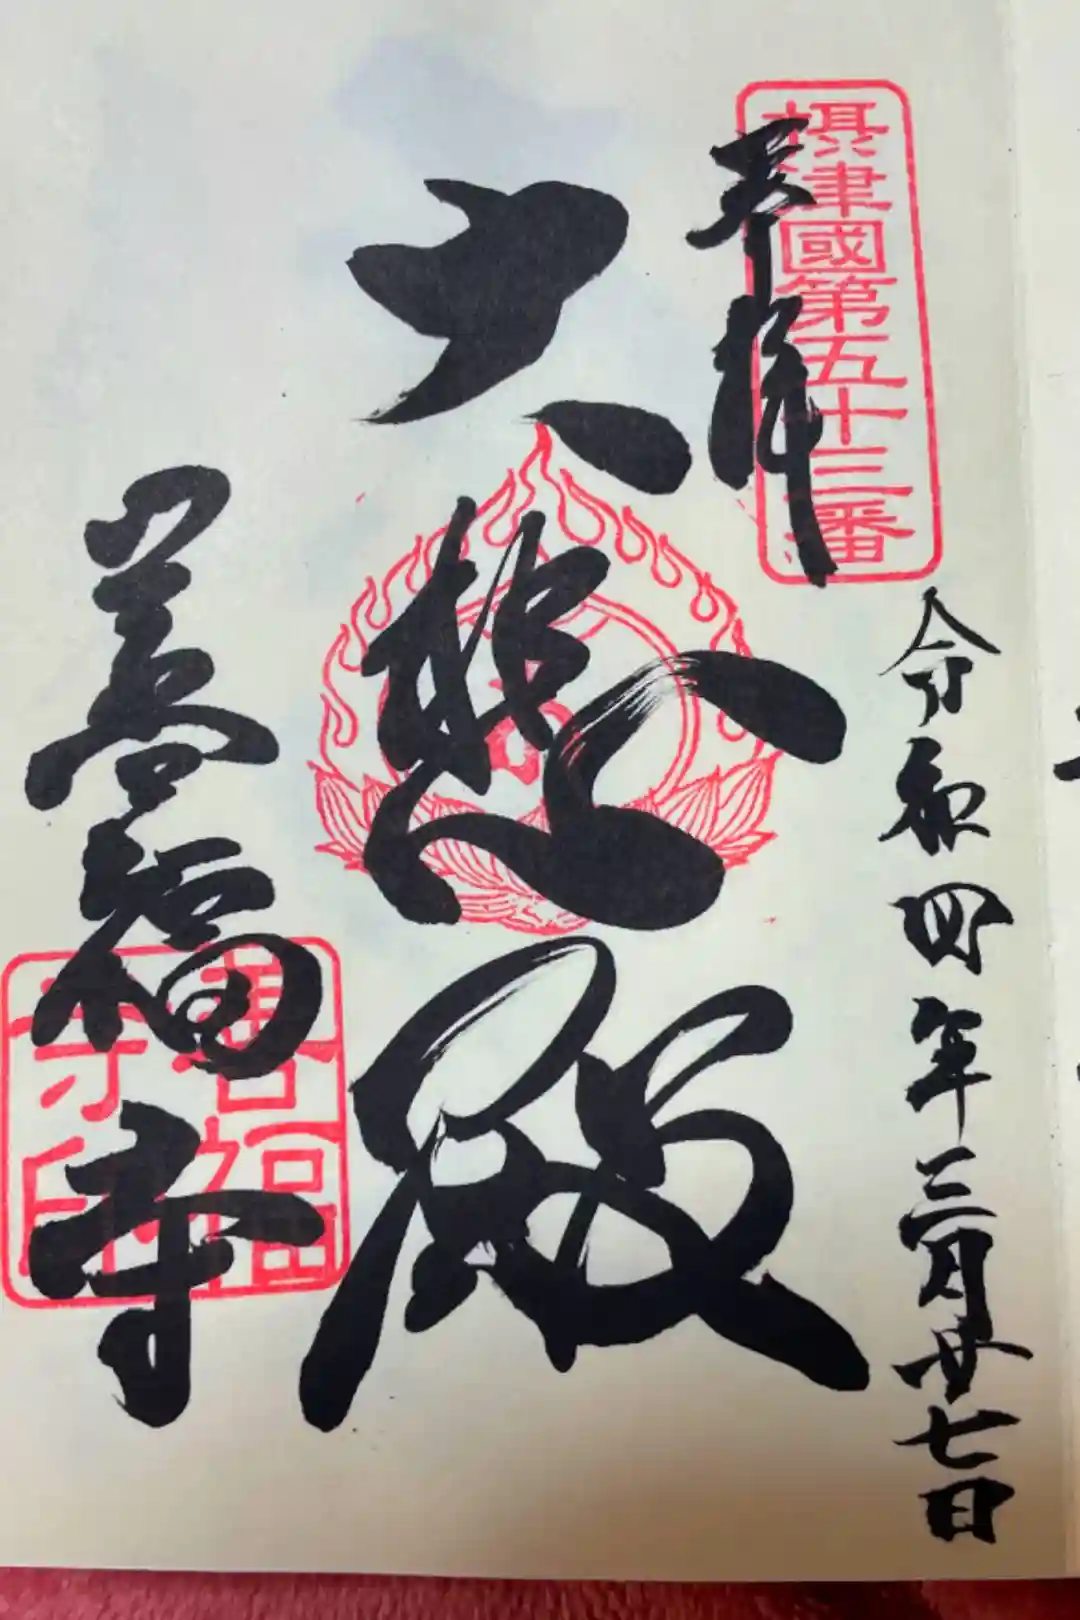 摂津國第五十三番
奉拝
令和四年三月廿七日
大悲殿
善福寺
善福寺印